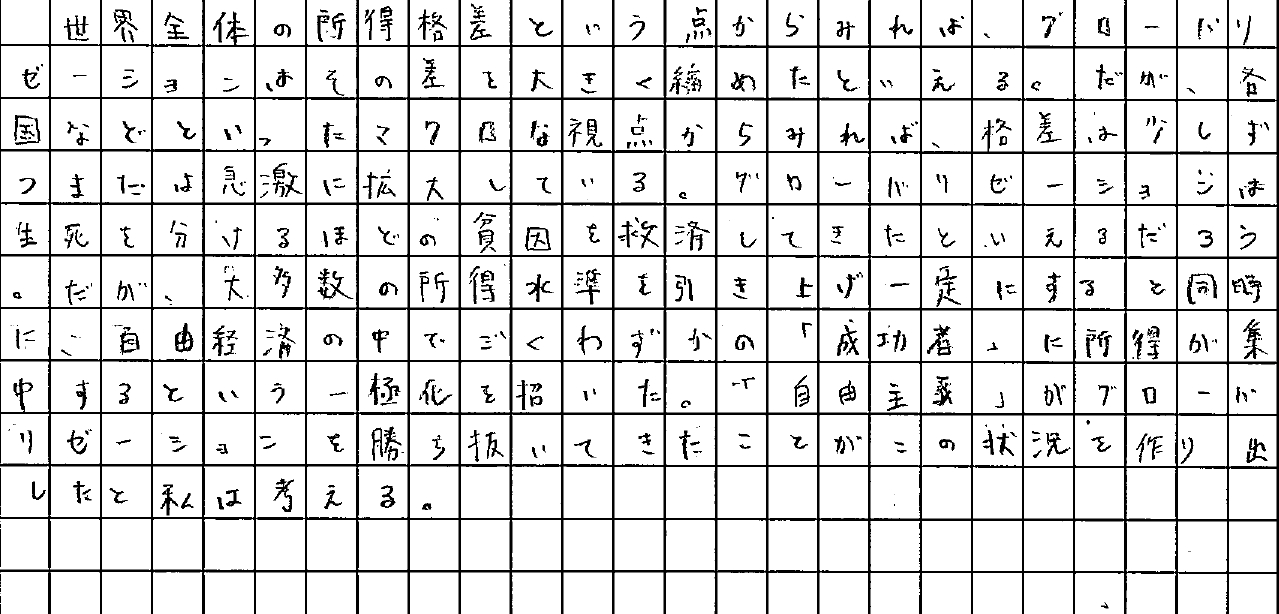 世界全体の所得格差という点からみれば、グローバリ
ゼーションはその差を大きく縮めたといえる。だが、各
国などといったマクロな視点からみれば、格差は少しず
つまたは急激に拡大している。グローバリゼーションは
生死を分けるほどの貧因を救済してきたといえるだろう
。だが、大多数の所得水準を引き上げ一定にすると同時
に、自由経済の中でごくわずかの「成功者」に所得が集
中するという一極化を招いた。「自由主義」がグローバ
リゼーションを勝ち抜いてきたことがこの状況を作り出
したと私は考える。